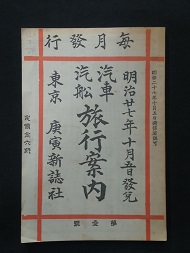 行發月每
明治廿七年十月五日發兌
汽車
汽船
旅行案內
東京 庚寅新誌社
定價金六錢
號壹第